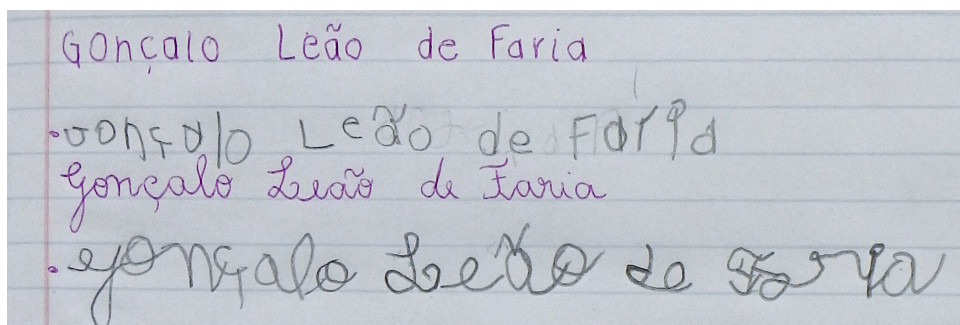 Gonçalo Leão de Faria
Gonçalo Leão de Faria
Gonçalo Leão de Faria
Gonçalo Leão de Faria